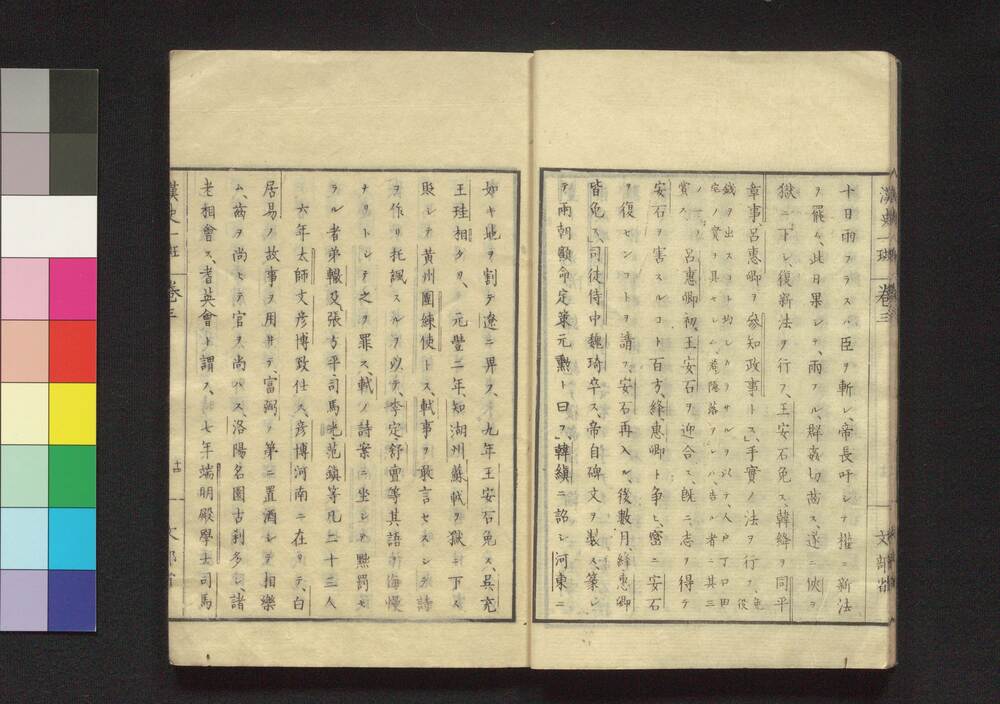 漢史一班 卷三 文部省
十日雨フラスハ、臣ヲ斬レ、帝長吁シテ權ニ新法
ヲ罷ム、此日果シテ、雨フル、群姦切齒ス、遂ニ俠ヲ
獄ニ下シ、復新法ヲ行フ、王安石免ス、韓絳ヲ同平
章事、呂惠卿ヲ參知政事トス、手實ノ法ヲ行フ
賞ス、呂惠卿初、王安石ヲ迎合ス、旣ニ志ヲ得テ
安石ヲ害スルコト百方、絳惠卿ト争ヒ、密ニ安石
ヲ復センコトヲ請フ、安石再入ル、後數月、絳惠卿
皆免ス、司徒侍中魏琦卒ス、帝自碑文ヲ製ス、篆シ
テ兩朝顧命定策元勲ト曰フ、韓縝ニ詔シ河東ニ
如キ地ヲ割テ遼ニ畀フ、九年王安石免ス、吳充
王珪相タリ、元豐二年、知湖州蘇軾ヲ獄ニ下ス
貶シテ黄州團練使トス、軾事ヲ敢言セスシテ詩
ヲ作リ托諷スルヲ以テ、李定、舒亶等其語ヲ侮慢
ナリトシテ之ヲ罪ス、軾ノ詩案ニ坐シテ黜罰セ
ラル者弟轍及張方平、司馬光、范鎮等凡二十三人
六年太師文彦博致仕ス、彦博河南ニ在リテ、白
居易ノ故事ヲ用ヰテ、富弼ノ第ニ置酒シテ相樂
ム、齒ヲ尚ヒテ官ヲ尚ハス、洛陽名園古刹多シ、諸
老相會ス、耆英會ト謂フ、七年端明殿學士司馬
漢史一班 卷三 十一 文部省